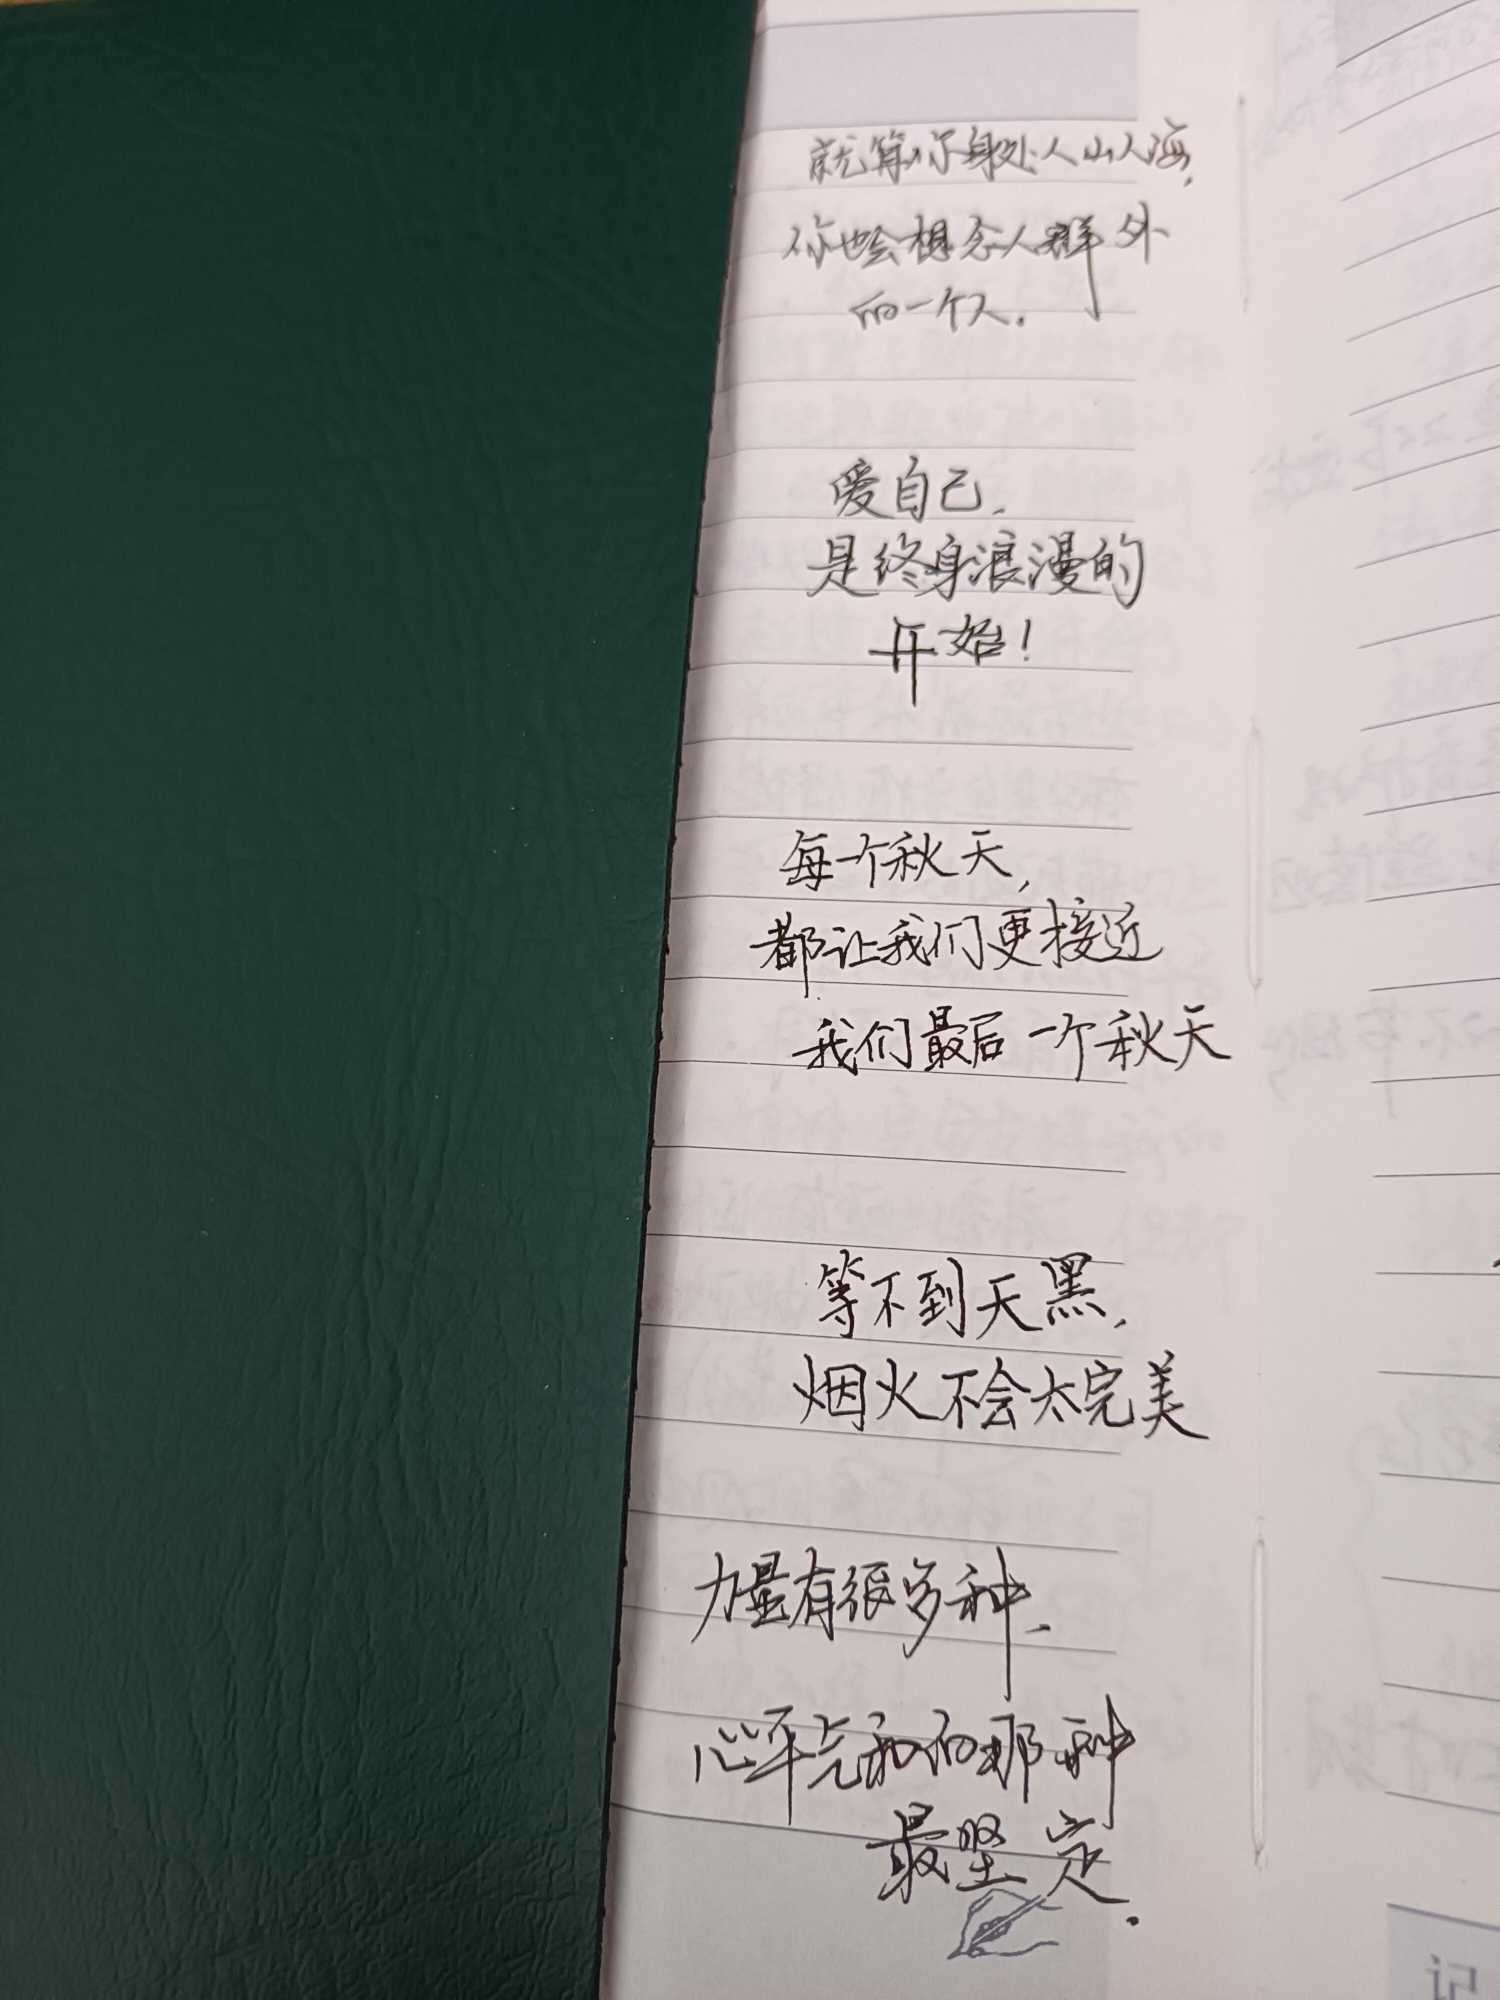 就算你身处人山人海,
你也会想念人群外
的一个人.
爱自己,
是终身浪漫的
开始!
每一个秋天,
都让我们更接近
我们最后一个秋天
等不到天黑,
烟火不会太完美
力量有很多种,
心平气和的那种
最坚定.